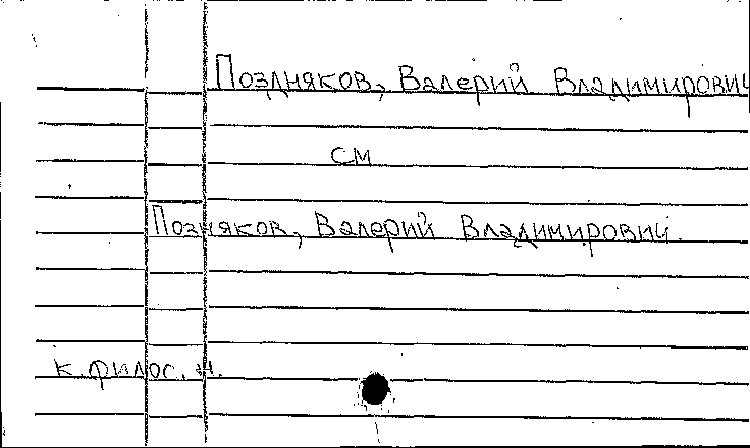 Поздняков, Валерий Владимирович
см
Позняков, Валерий Владимирович.
к. филос. н.